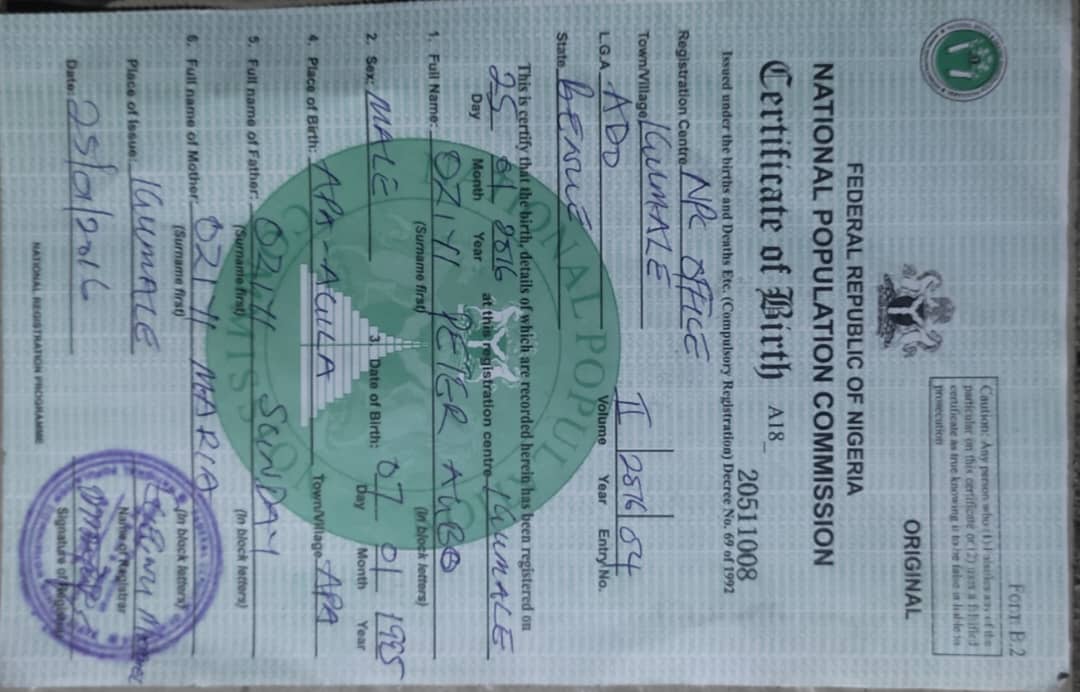 Form B.2
Caution: Any person who (1) Falsifies any of the
particular on this certificate or (2) uses a falsified
certificate as true knowing it to be false is liable to
prosecution
ORIGINAL
FEDERAL REPUBLIC OF NIGERIA
NATIONAL POPULATION COMMISSION
Certificate of Birth A18_
20511008
Issued under the births and Deaths Etc. (Compulsory Registration) Decree No. 69 of 1992
Registration Centre NPC OFFICE
Town/Village IGUMALE
L.G.A. ADO
II 2016 04
Volume Year Entry No.
State BENUE
This is certify that the birth, details of which are recorded herein has been registered on
25 01 2016 at this registration centre IGUMALE
Day Month Year
1. Full Name: OZIYI PETER AGBO
(Surname first) (In block letters)
2. Sex: MALE 3. Date of Birth: 07 01 1995
Day Month Year
4. Place of Birth: APA-AGILA Town/Village APA
5. Full name of Father: OZIYI SUNDAY
(Surname first) (In block letters)
6. Full name of Mother: OZIYI MARIA
(Surname first) (In block letters)
Place of Issue: IGUMALE
Name of Registrar
Date: 25/01/2016
Signature of Registrar
NATIONAL REGISTRATION PROGRAMME
NATIONAL POPULATION COMMISSION